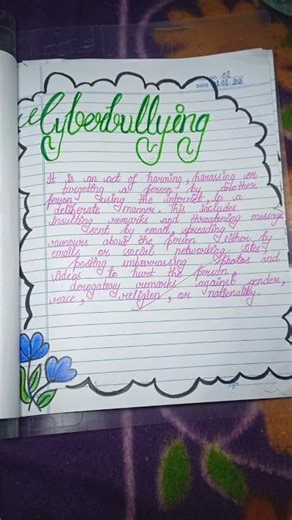 Cyberbullying
It is an act of harming, harassing or
targeting a person by another
person using the internet in a
deliberate manner. This includes
insulting remarks and threatening message
sent by emails, spreading
rumours about the person either by
emails or social networking site,
posting embarrassing photos and
videos to hurt the person,
derogatory remarks against gender,
race, religion, or nationality.